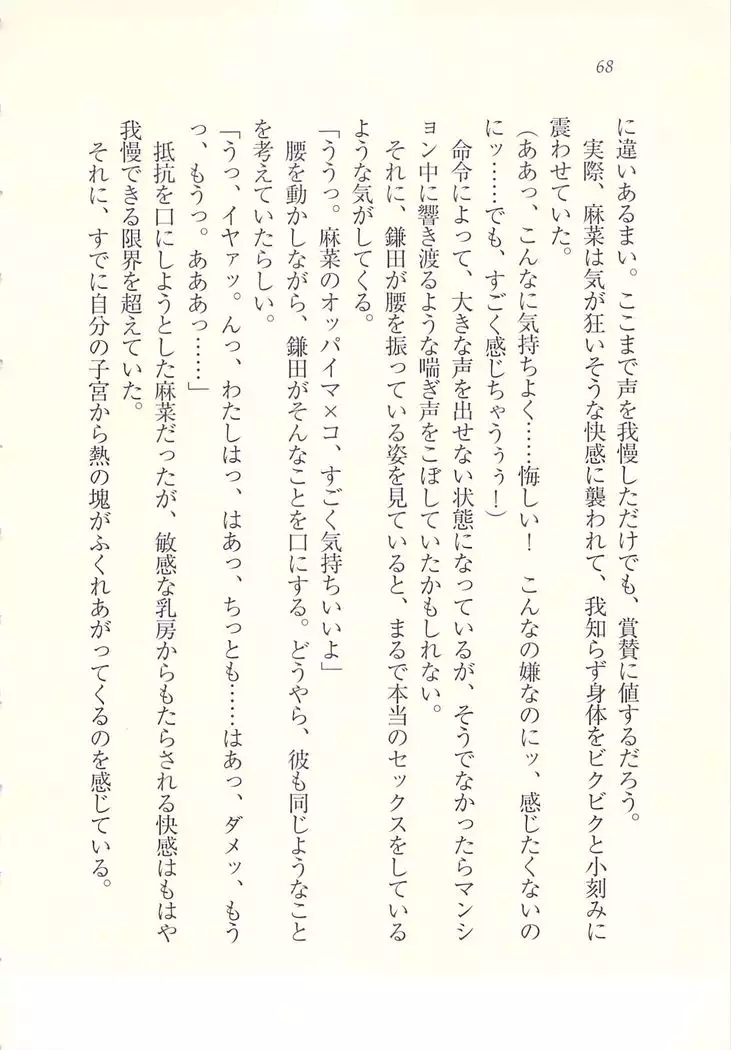 68
に違いあるまい。ここまで声を我慢しただけでも、賞賛に値するだろう。
　実際、麻菜は気が狂いそうな快感に襲われて、我知らず身体をビクビクと小刻みに
震わせていた。
（ああっ、こんなに気持ちよく……悔しい！　こんなの嫌なのにッ、感じたくないの
にッ……でも、すごく感じちゃうぅぅ！）
　命令によって、大きな声を出せない状態になっているが、そうでなかったらマンシ
ョン中に響き渡るような喘ぎ声をこぼしていたかもしれない。
　それに、鎌田が腰を振っている姿を見ていると、まるで本当のセックスをしている
ような気がしてくる。
「ううっ。麻菜のオッパイマ×コ、すごく気持ちいいよ」
　腰を動かしながら、鎌田がそんなことを口にする。どうやら、彼も同じようなこと
を考えていたらしい。
「うっ、イヤァッ。んっ、わたしはっ、はあっ、ちっとも……はあっ、ダメッ、もう
っ、もうっ。あああっ……」
　抵抗を口にしようとした麻菜だったが、敏感な乳房からもたらされる快感はもはや
我慢できる限界を超えていた。
　それに、すでに自分の子宮から熱の塊がふくれあがってくるのを感じている。